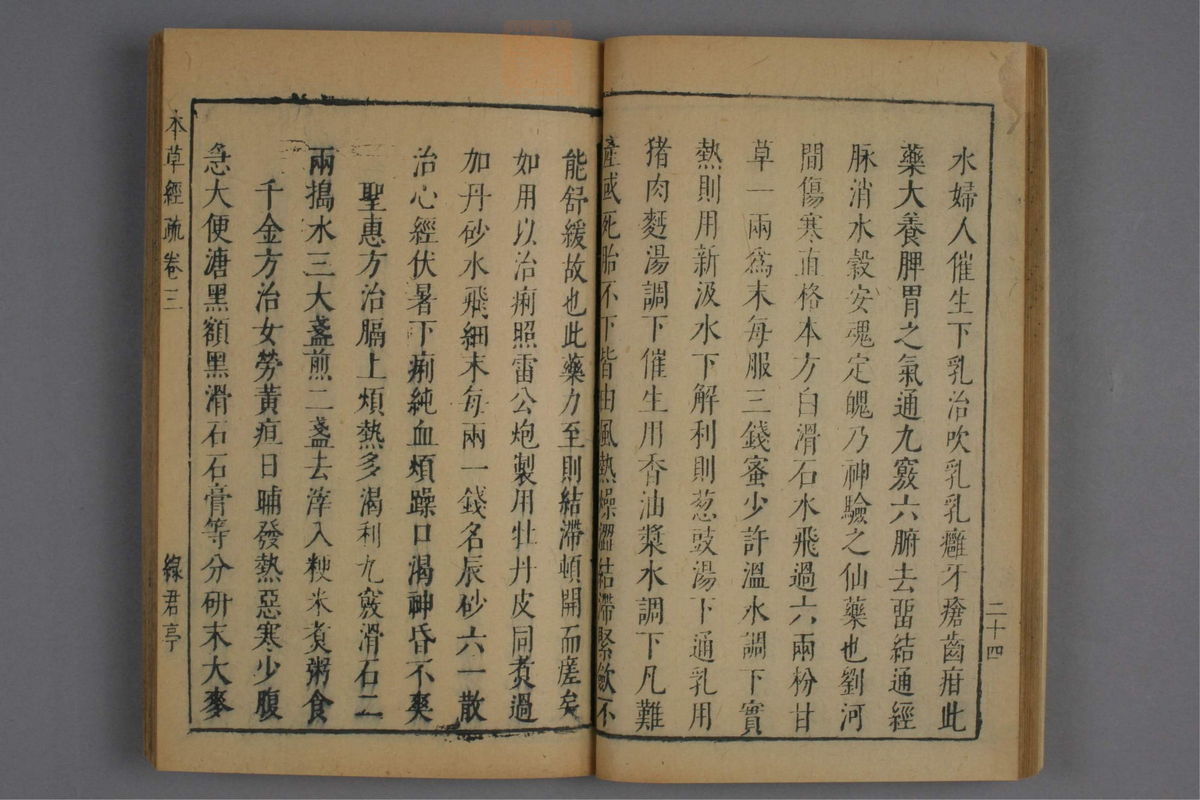 水婦人催生下乳治吹乳乳癰牙瘡齒疳此
藥大養脾胃之氣通九竅六腑去畱結通經
脉消水穀安魂定魄乃神驗之仙藥也劉河
間傷寒直格本方白滑石水飛過六兩粉甘
草一兩爲末每服三錢蜜少許溫水調下實
熱則用新汲水下解利則葱豉湯下通乳用
猪肉麪湯調下催生用香油漿水調下凡難
產或死胎不下皆由風熱燥澀結滯緊斂不
能舒緩故也此藥力至則結滯頓開而瘥矣
如用以治痢照雷公炮製用牡丹皮同煑過
加丹砂水飛細末每兩一錢名辰砂六一散
治心經伏暑下痢純血煩躁口渴神昏不爽
聖惠方治膈上煩熱多渴利九竅滑石二
兩搗水三大盞煎二盞去滓入粳米煑粥食
千金方治女勞黃疸日晡發熱惡寒少腹
急大便溏黑額黑滑石石膏等分研末大麥
本草經疏 卷三
綠君亭
二十四